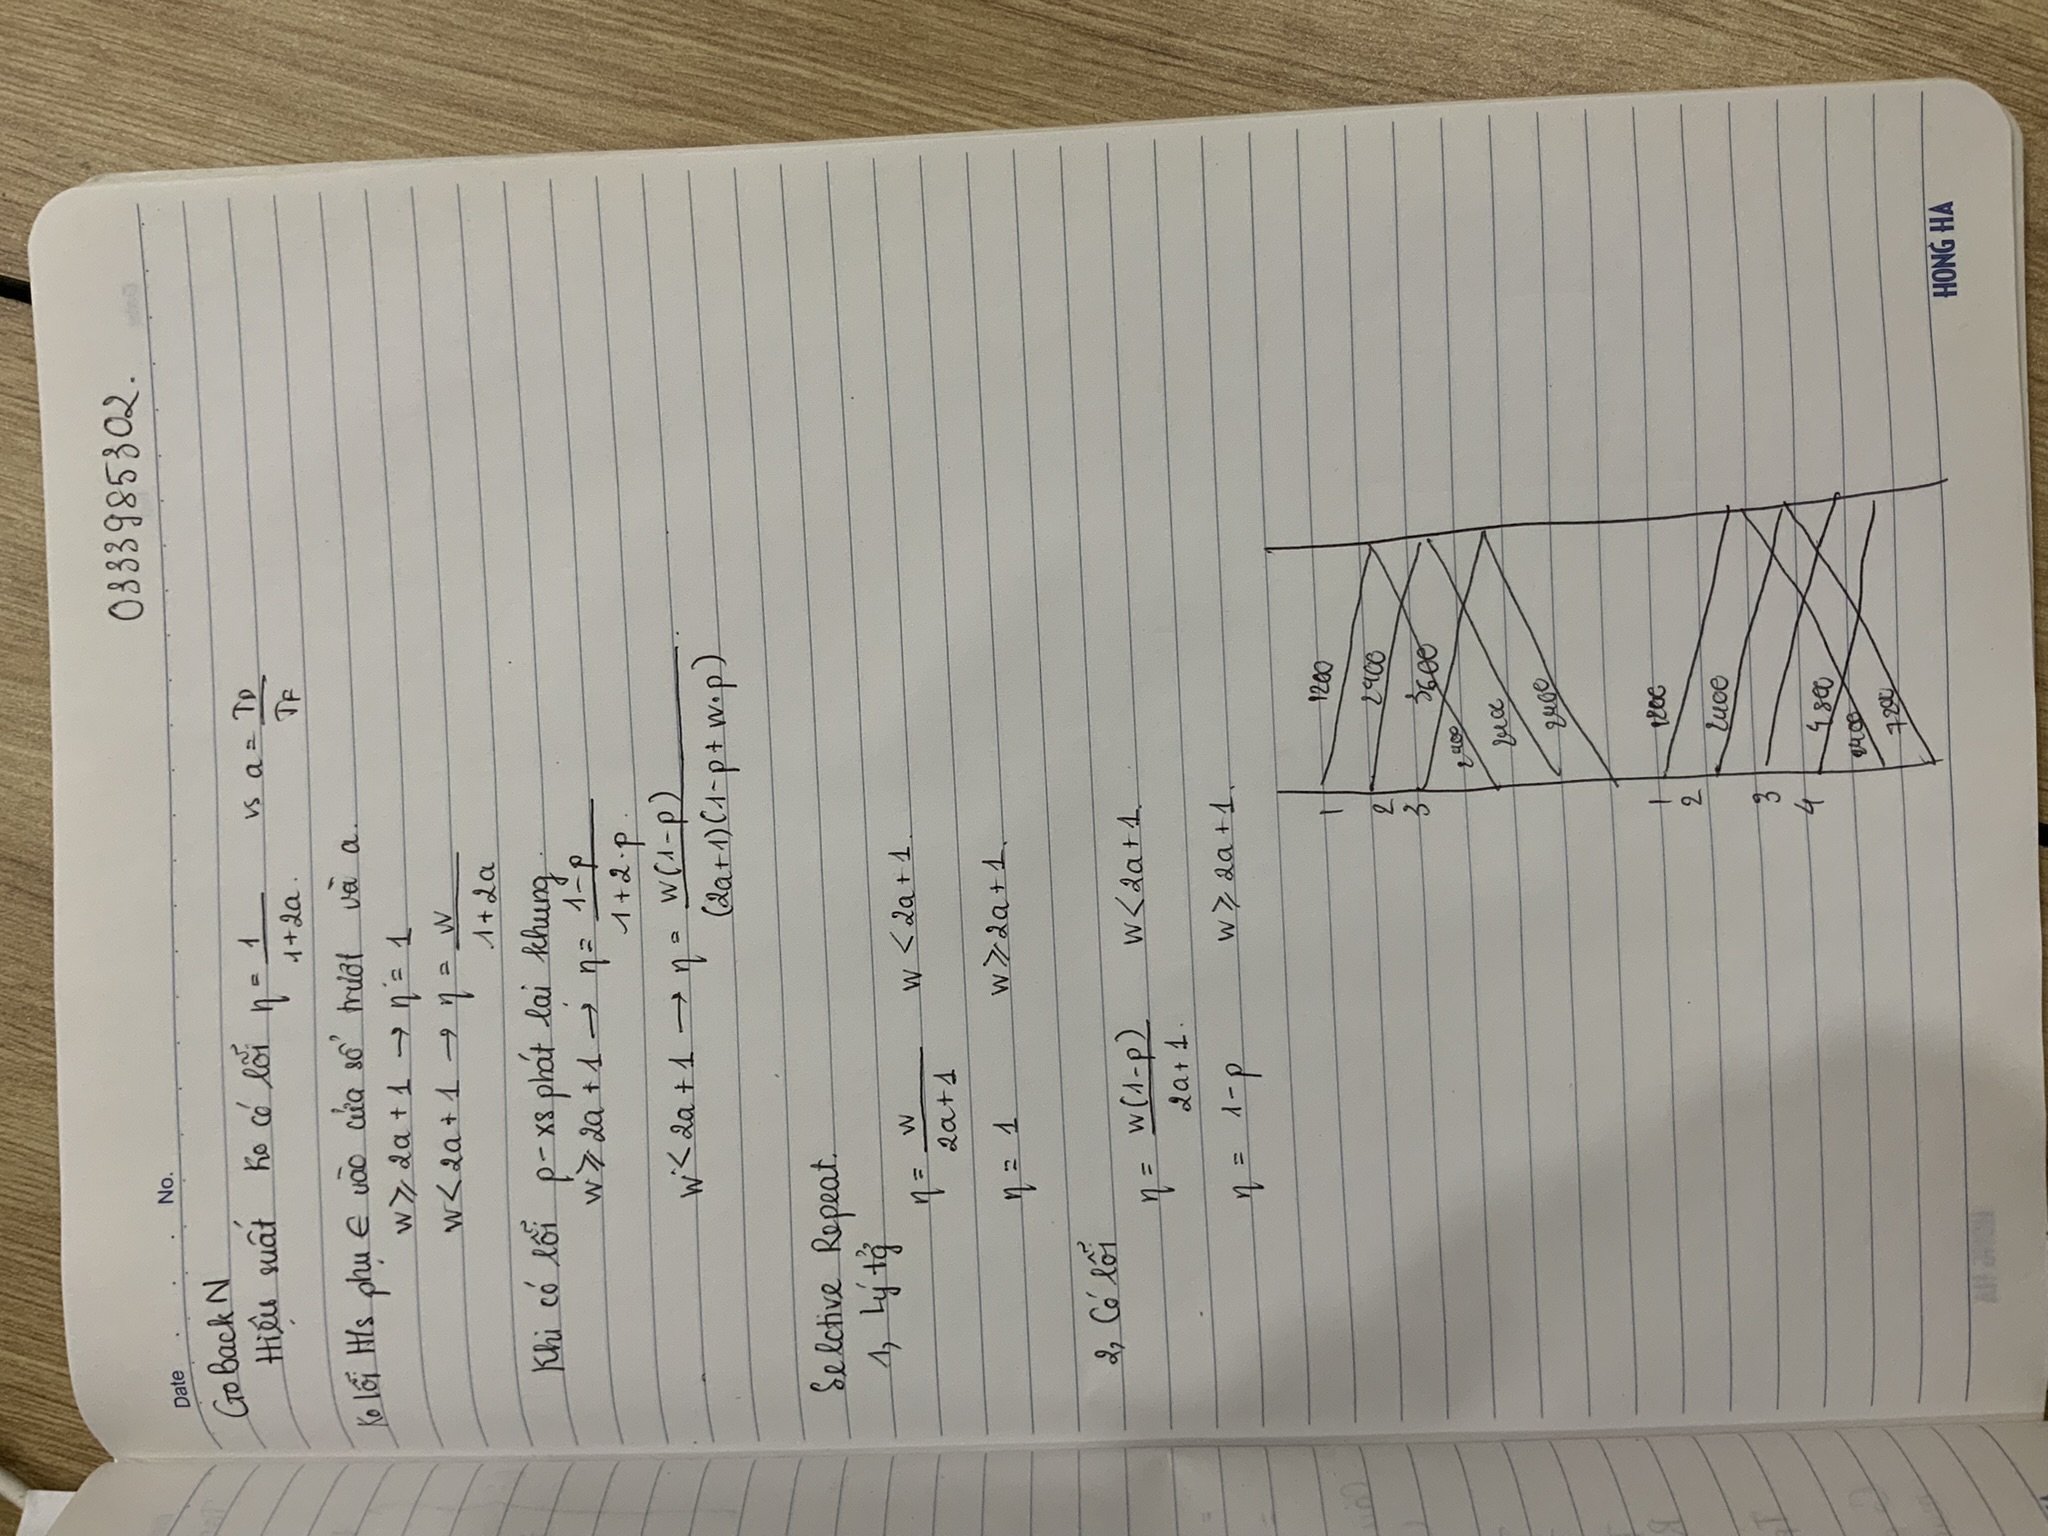 0333985302.
Date No.
Go Back N
Hiệu suất ko có lỗi η = 1/(1+2a). vs a = TD/TF
Ko lỗi H/s phụ ∈ vào cửa sổ trượt và a.
W ⩾ 2a + 1 → η = 1
W < 2a + 1 → η = W/(1+2a)
Khi có lỗi p - xs phát lại khung.
W ⩾ 2a + 1 → η = (1-p)/(1+2·p).
W < 2a + 1 → η = W(1-p)/((2a+1)(1-p+W·p)).
Selctive Repeat.
1, Lý tg̉
η = W/(2a+1) W < 2a + 1.
η = 1 W ⩾ 2a + 1.
2, Có lỗi
η = W(1-p)/(2a+1). W < 2a + 1.
η = 1-p W ⩾ 2a + 1.
1 1200
2 2400
3 3600
2400
2400
2400
1 1200
2
2400
3
4 4800
2400
7200
HONG HA